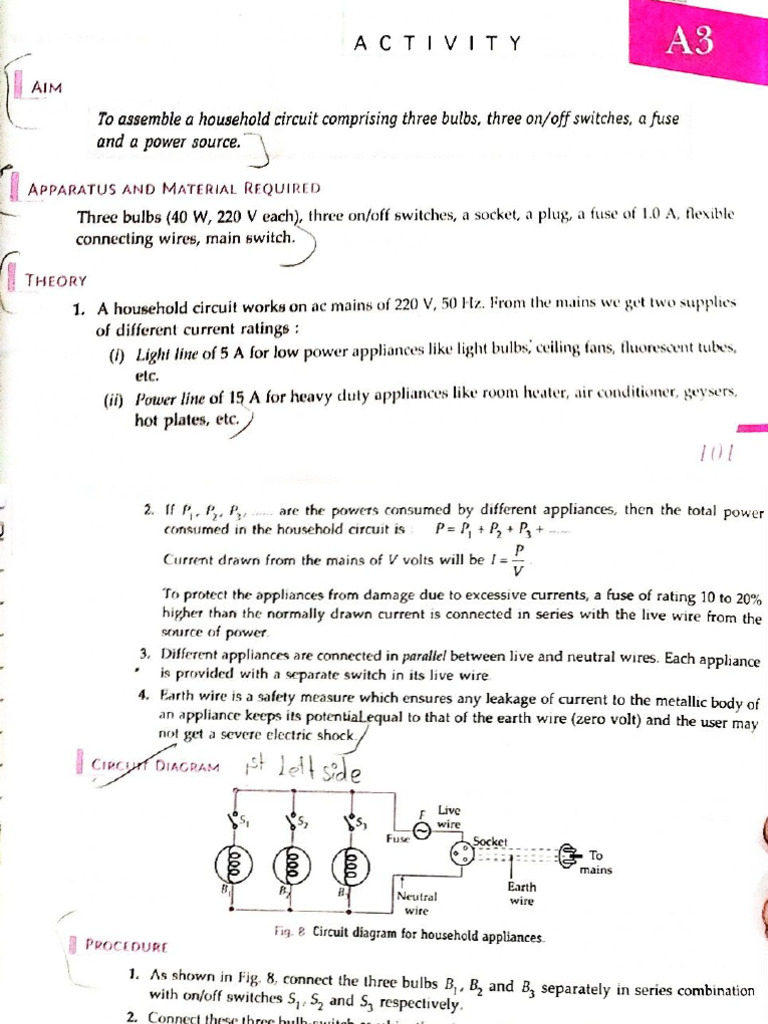 ACTIVITY
A3
AIM
To assemble a household circuit comprising three bulbs, three on/off switches, a fuse
and a power source.
APPARATUS AND MATERIAL REQUIRED
Three bulbs (40 W, 220 V each), three on/off switches, a socket, a plug, a fuse of 1.0 A, flexible
connecting wires, main switch.
THEORY
1. A household circuit works on ac mains of 220 V, 50 Hz. From the mains we get two supplies
of different current ratings :
(i) Light line of 5 A for low power appliances like light bulbs, ceiling fans, fluorescent tubes,
etc.
(ii) Power line of 15 A for heavy duty appliances like room heater, air conditioner, geysers,
hot plates, etc.
101
2. If P₁, P₂, P₃, ...... are the powers consumed by different appliances, then the total power
consumed in the household circuit is P = P₁ + P₂ + P₃ + ......
Current drawn from the mains of V volts will be I = P/V.
To protect the appliances from damage due to excessive currents, a fuse of rating 10 to 20%
higher than the normally drawn current is connected in series with the live wire from the
source of power.
3. Different appliances are connected in parallel between live and neutral wires. Each appliance
is provided with a separate switch in its live wire.
4. Earth wire is a safety measure which ensures any leakage of current to the metallic body of
an appliance keeps its potential equal to that of the earth wire (zero volt) and the user may
not get a severe electric shock.
CIRCUIT DIAGRAM 1st left side
S₁ S₂ S₃
Fuse
F
Live
wire
Socket
To
mains
B₁ B₂ B₃
Neutral
wire
Earth
wire
Fig. 8 Circuit diagram for household appliances.
PROCEDURE
1. As shown in Fig. 8, connect the three bulbs B₁, B₂ and B₃ separately in series combination
with on/off switches S₁, S₂ and S₃ respectively.
2. Connect these three bulb-switch